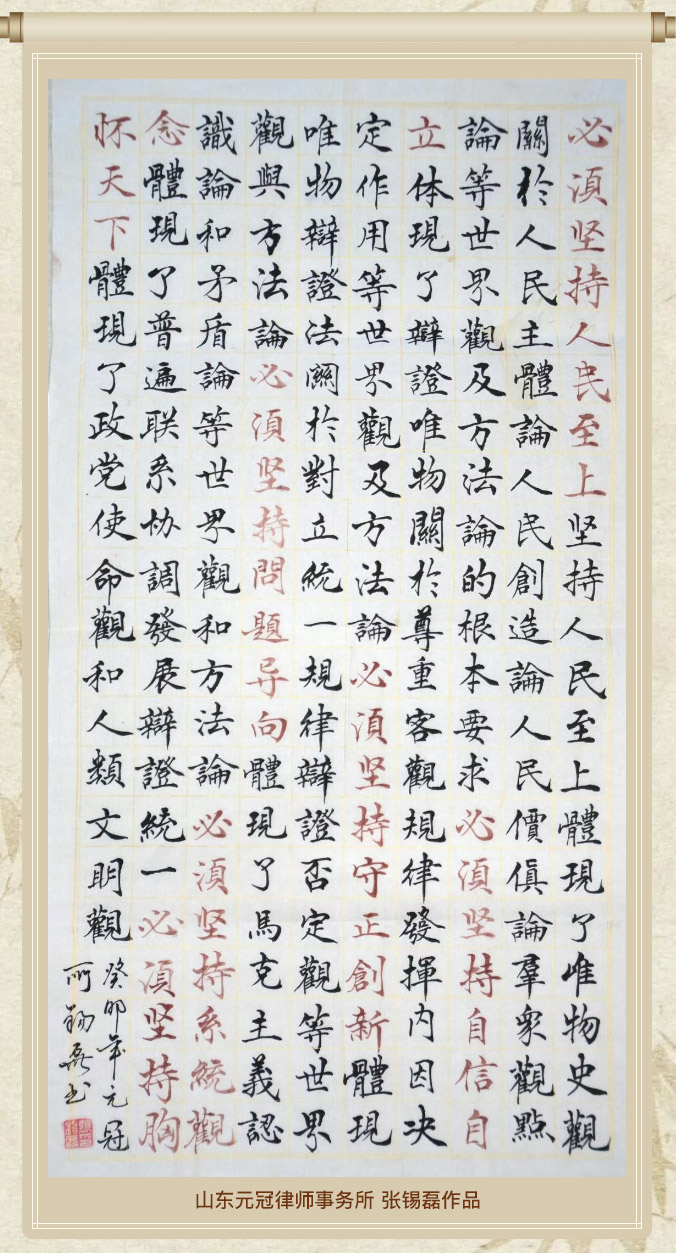 必須坚持人民至上坚持人民至上體現了唯物史觀
關於人民主體論人民創造論人民價值論羣衆觀點
論等世界觀及方法論的根本要求必須坚持自信自
立体現了辯證唯物關於尊重客觀規律發揮内因决
定作用等世界觀及方法論必須坚持守正創新體現
唯物辯證法關於對立統一規律辯證否定觀等世界
觀與方法論必須坚持問題导向體現了馬克主義認
識論和矛盾論等世界觀和方法論必須坚持系統觀
念體現了普遍联系协調發展辯證統一必須坚持胸
怀天下體現了政党使命觀和人類文明觀
癸卯年元冠
所錫磊书
山东元冠律师事务所 张锡磊作品